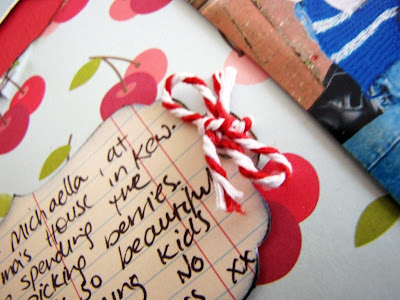 Michaella, at
ma's House in Kew.
spending the
picking berries.
so beautiful
Kids
No
xx